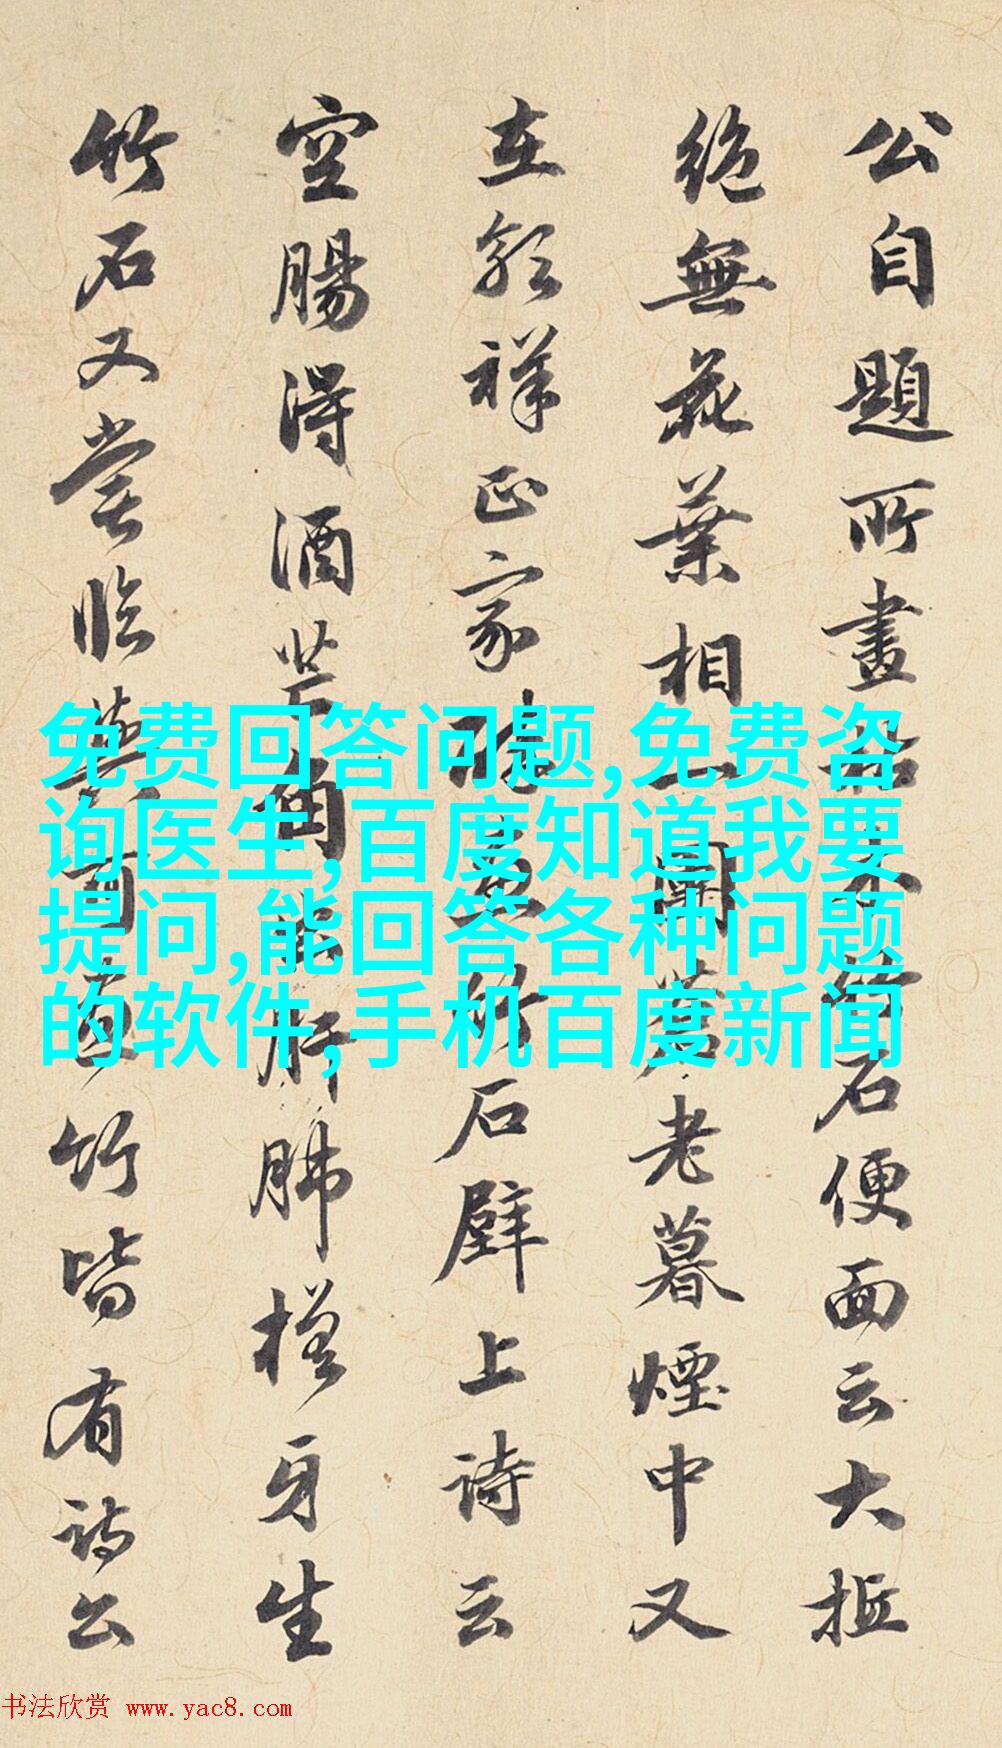 公自題所畫古木竹石便面云大抵
絶無花葉相一蘭蒼老暮煙中又
在郭祥正家醉畫竹石壁上詩云
空腸得酒芒角出肝肺槎牙生
竹石又嘗臨與可畫竹皆有詩公
免费回答问题,免费咨
询医生,百度知道我要
提问,能回答各种问题
的软件,手机百度新闻
书法欣赏 www.yac8.com